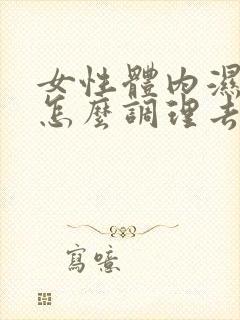 女性體內濕
怎麼調理去
寫噫